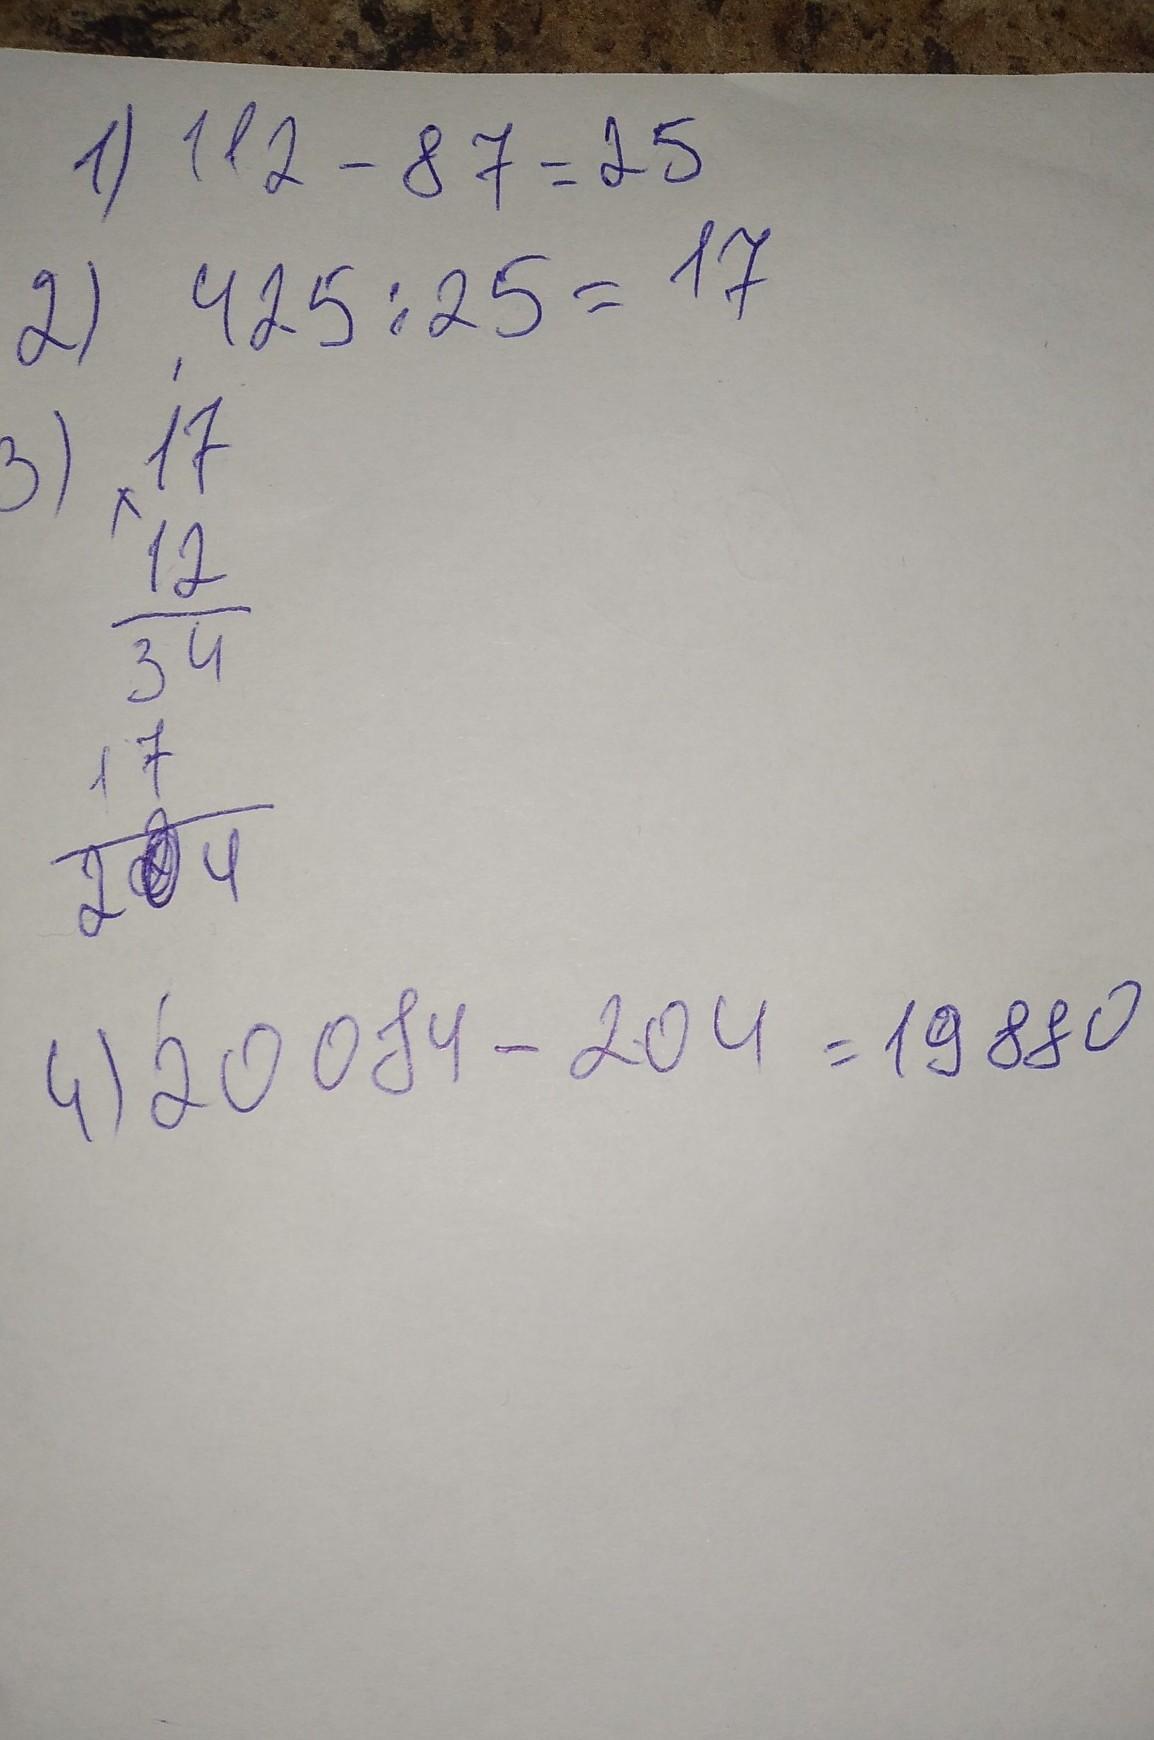 1) 112 - 87 = 25
2) 425 : 25 = 17
3) 17
×
12
34
17
204
4) 20084 - 204 = 19880